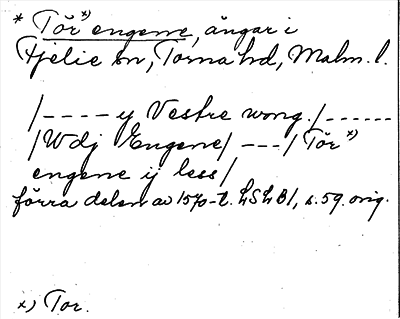 * Tör *) engene, ängar i
Fjelie sn, Torna hd, Malm. l.
/---- y Vestre wong. /------
/Wdj Engene/ ---/ Tör *)
engene ij less/
förra delen av 1570-t. LSLB1, s. 59. orig.
*) Tor.